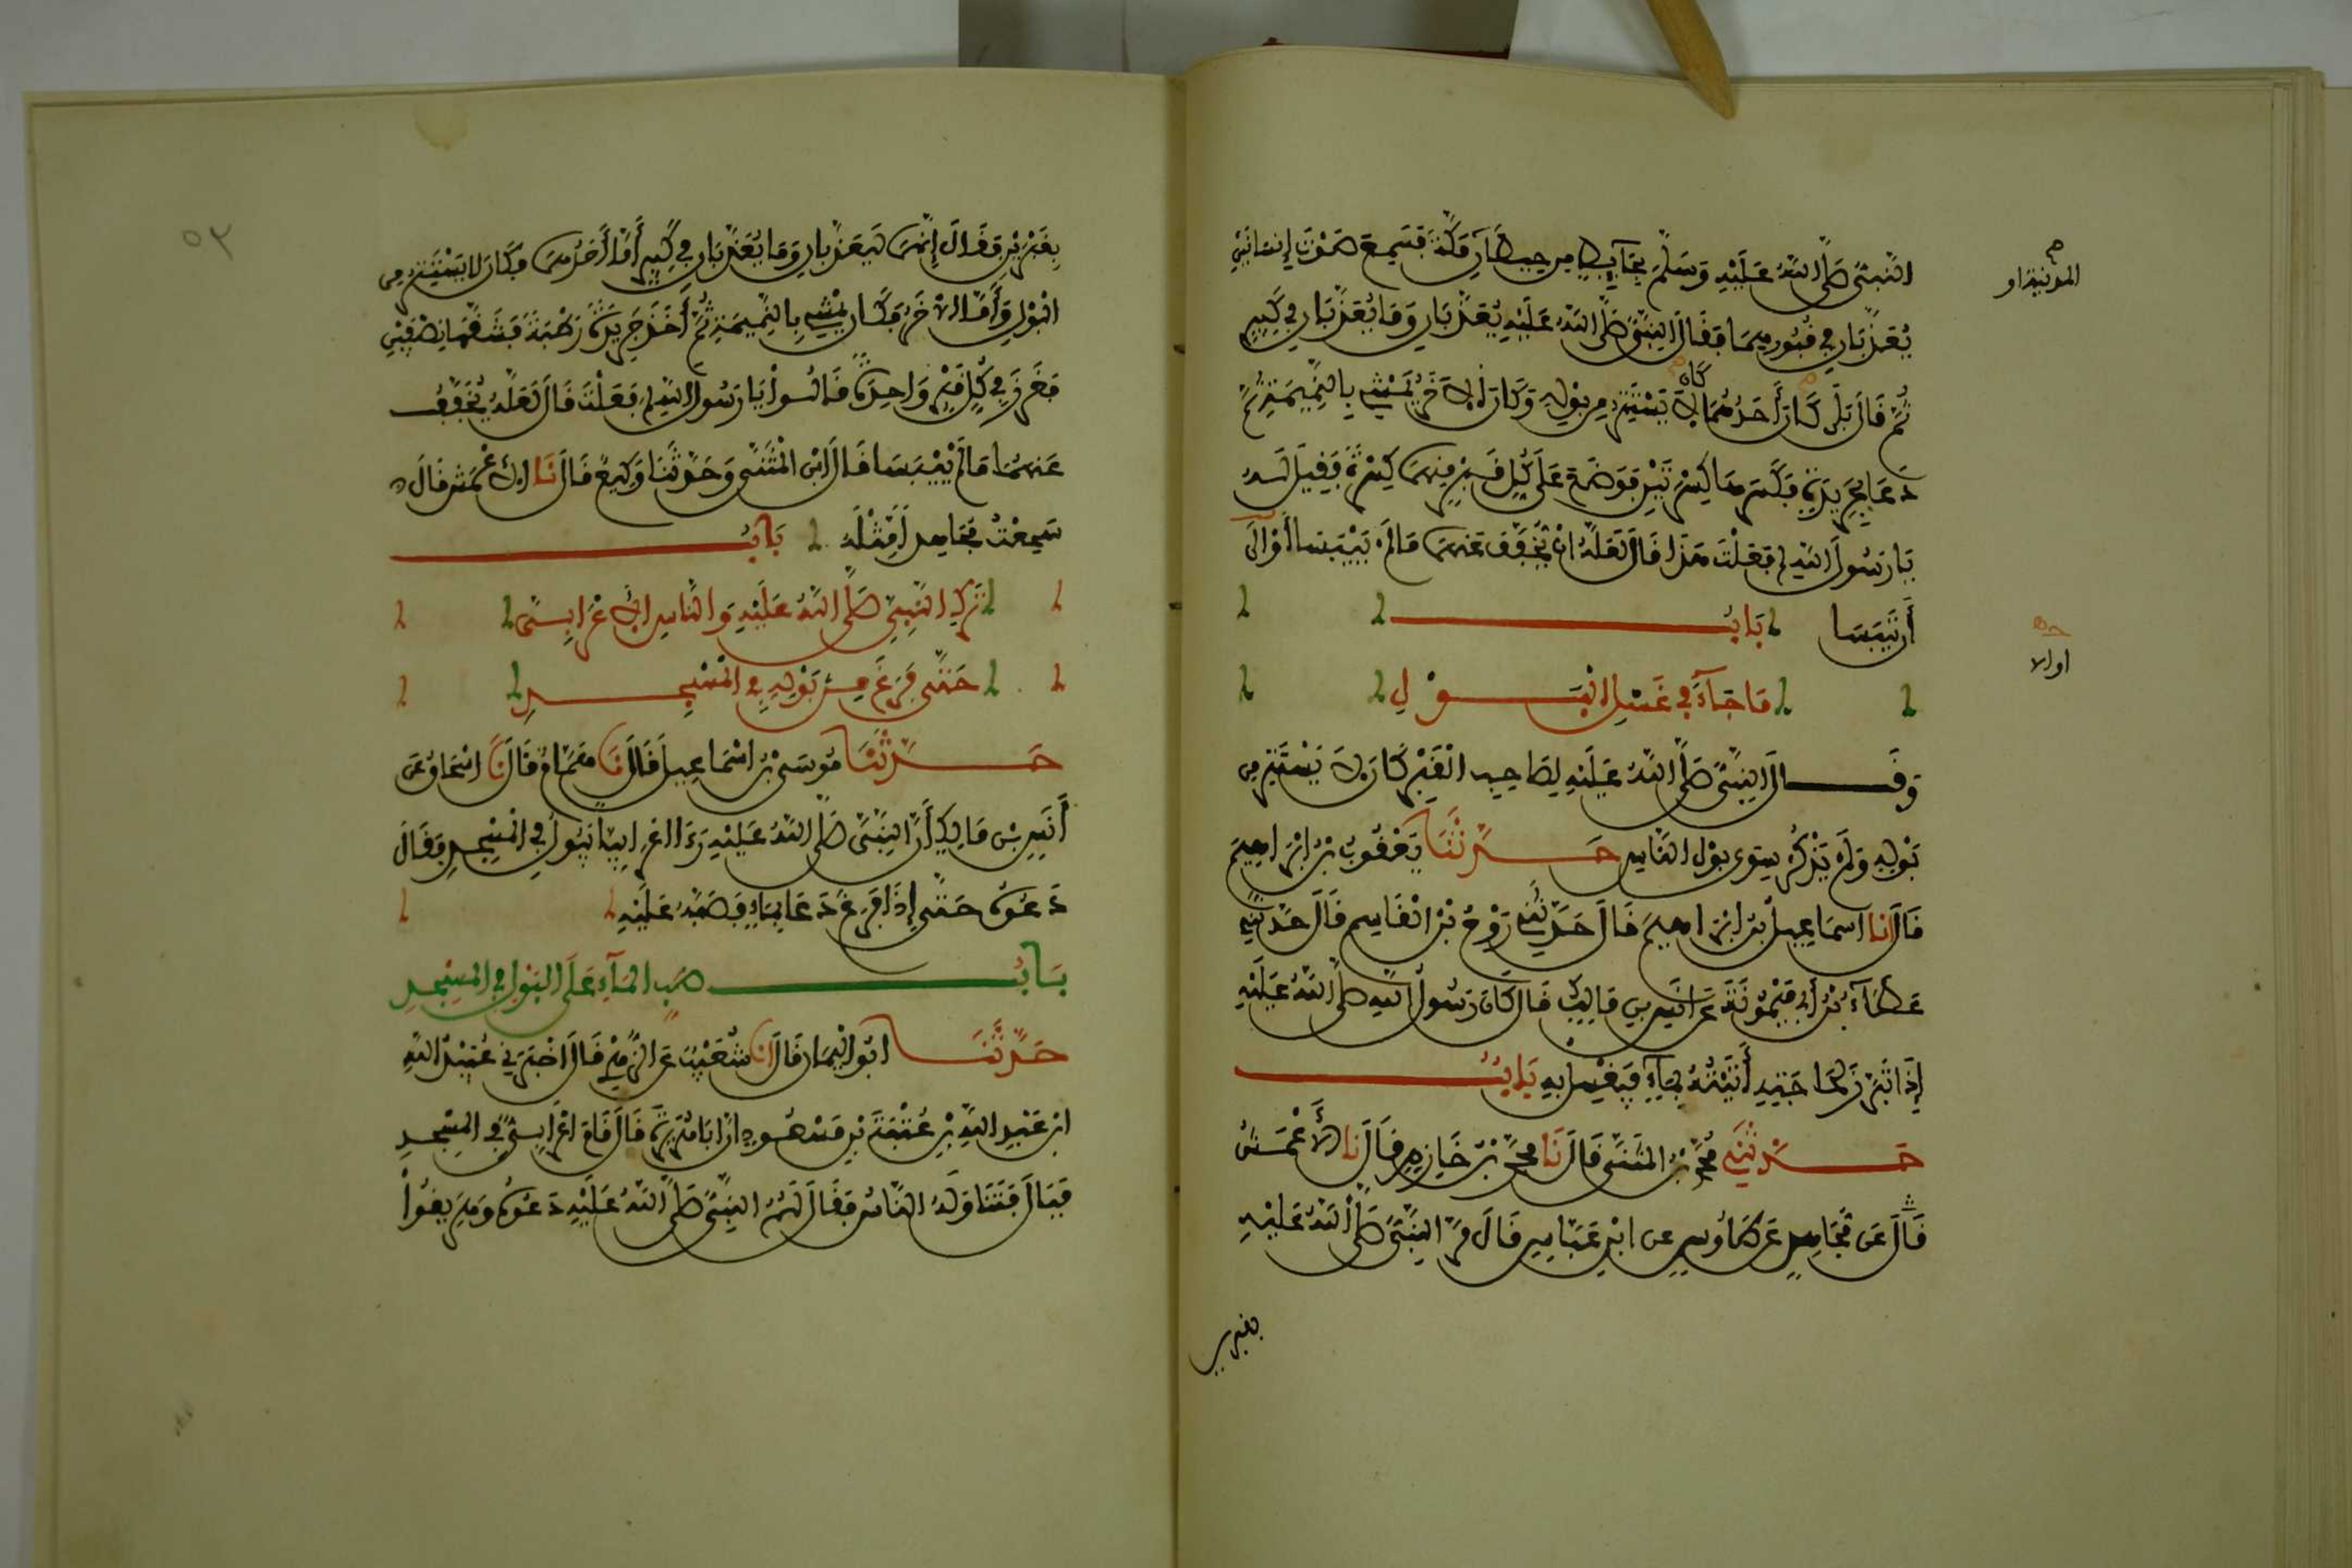 النَّبِيُّ صَلَّى اللَّهُ عَلَيْهِ وَسَلَّمَ بِحَآيِطٍ مِن حِيطَانِ مَكَّةَ فَسَمِعَ صَوْتَ إِنسَانَيْنِ
المدينة او
يُعَذَّبَانِ فِي قُبُورِهِمَا فَقَالَ النَّبِيُّ صَلَّى اللَّهُ عَلَيْهِ يُعَذَّبَانِ وَمَا يُعَذَّبَانِ فِي كَبِيرٍ
ثُمَّ قَالَ بَلَى كَانَ أَحَدُهُمَا لَا يَسْتَتِرُ مِن بَوْلِهِ وَكَانَ الاخَرُ يَمْشِي بِالنَّمِيمَةِ ثُمَّ
دَعَا بِجَرِيدَةٍ فَكَسَرَهَا كِسْرَتَيْنِ فَوَضَعَ عَلَى كُلِّ قَبْرٍ مِنهُمَا كِسْرَةً فَقِيلَ لَهُ
يَا رَسُولَ اللَّهِ لِمَ فَعَلْتَ هَذَا قَالَ لَعَلَّهُ انْ يُخَفَّفَ عَنهُمَا مَا لَمْ يَيْبَسَا أَوْ إِلَى
أَن يَيْبَسَا بَابُ
او الا
مَا جَآءَ فِي غَسْلِ الْبَوْلِ
وَقَالَ النَّبِيُّ صَلَّى اللَّهُ عَلَيْهِ لِصَاحِبِ الْقَبْرِ كَانَ لَا يَسْتَتِرُ مِن
بَوْلِهِ وَلَمْ يَذْكُرْ سِوَى بَوْلِ النَّاسِ حَدَّثَنَا يَعْقُوبُ بْنُ إبْرَاهِيمَ
قَالَ انا اسمَاعِيلُ بْنُ ابْرَاهِيمَ قَالَ حَدَّثَنِي رَوْحُ بْنُ الْقَاسِمِ قَالَ حَدَّثَنِي
عَطَآءُ بْنُ أَبِي مَيْمُونَةَ عَنَ انَسِ بنِ مَالِكٍ قَالَ كَانَ رَسُولُ اللَّهِ صَلَّى اللَّهُ عَلَيْهِ
إِذَا تَبَرَّزَ لِحَاجَتِهِ أَتَيْتُهُ بِمَآءٍ فَيَغْسِلُ بِهِ بَابُ
حَدَّثَنِي مُحَمَّدُ بْنُ الْمُثَنَّى قَالَ نَا مُحَمَّدُ بْنُ خَازِمٍ قَالَ نَا الأَعْمَشُ
قَالَ عَن مُجَاهِدٍ عَن طَاوُسٍ عن ابْنِ عَبَّاسٍ قَالَ مَرَّ النَّبِيُّ صَلَّى اللَّهُ عَلَيْهِ
بقبرين
٥٣
بِقَبْرَيْنِ فَقَالَ إِنَّهُمَا لَيُعَذَّبَانِ وَمَا يُعَذَّبَانِ فِي كَبِيرٍ أَمَّا أَحَدُهُمَا فَكَانَ لا يَسْتَتِرُ مِن
الْبَوْلِ وَأَمَّا الاخَرُ فَكَانَ يَمْشِي بِالنَّمِيمَةِ ثُمَّ أَخَذَ جَرِيدَةً رَطْبَةً فَشَقَّهَا نِصْفَيْنِ
فَغَرَزَ فِي كُلِّ قَبْرٍ وَاحِدَةً قَالُوا يَا رَسُولَ اللَّهِ لِمَ فَعَلْتَ قَالَ لَعَلَّهُ يُخَفَّفُ
عَنهُمَا مَا لَمْ يَيْبَسَا قَالَ ابْنُ الْمُثَنَّى وَحَدَّثَنَا وَكِيعٌ قَالَ نَا الاعْمَشُ قَالَ
سَمِعْتُ مُجَاهِدًا مِثْلَهُ بَابُ
تَرْكِ النَّبِيِّ صَلَّى اللَّهُ عَلَيْهِ وَالنَّاسِ الاعْرَابِيَّ
حَتَّى فَرَغَ مِنْ بَوْلِهِ فِي الْمَسْجِدِ
حَدَّثَنَا مُوسَى بْنُ اسْمَاعِيلَ قَالَ نَا هَمَّامٌ قَالَ نَا اسْحَاقُ عَن
أَنَسِ بْنِ مَالِكٍ أَنَّ النَّبِيَّ صَلَّى اللَّهُ عَلَيْهِ رَءَا اعْرَابِيًّا يَبُولُ فِي الْمَسْجِدِ فَقَالَ
دَعُوهُ حَتَّى إِذَا فَرَغَ دَعَا بِمَاءٍ فَصَبَّهُ عَلَيْهِ
بَابُ صَبِّ الْمَآءِ عَلَى الْبَوْلِ فِي الْمَسْجِدِ
حَدَّثَنَا ابُو الْيَمَانِ قَالَ انا شُعَيْبٌ عَنِ الزُّهْرِيِّ قَالَ اخْبَرَنِي عُبَيْدُ اللَّهِ
ابْنُ عَبْدِ اللَّهِ بْنِ عُتْبَةَ بْنِ مَسْعُودٍ انَّ ابَا هُرَيْرَةَ قَالَ قَامَ اعْرَابِيٌّ فِي الْمَسْجِدِ
فَبَالَ فَتَنَاوَلَهُ النَّاسُ فَقَالَ لَهُمُ النَّبِيُّ صَلَّى اللَّهُ عَلَيْهِ دَعُوهُ وَهَرِيقُوا